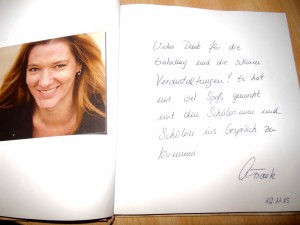 Vielen Dank für die
Einladung und die schönen
Veranstaltungen! Es hat
mir viel Spaß gemacht
mit den Schülerinnen und
Schülern ins Gespräch zu
kommen.
12.11.15